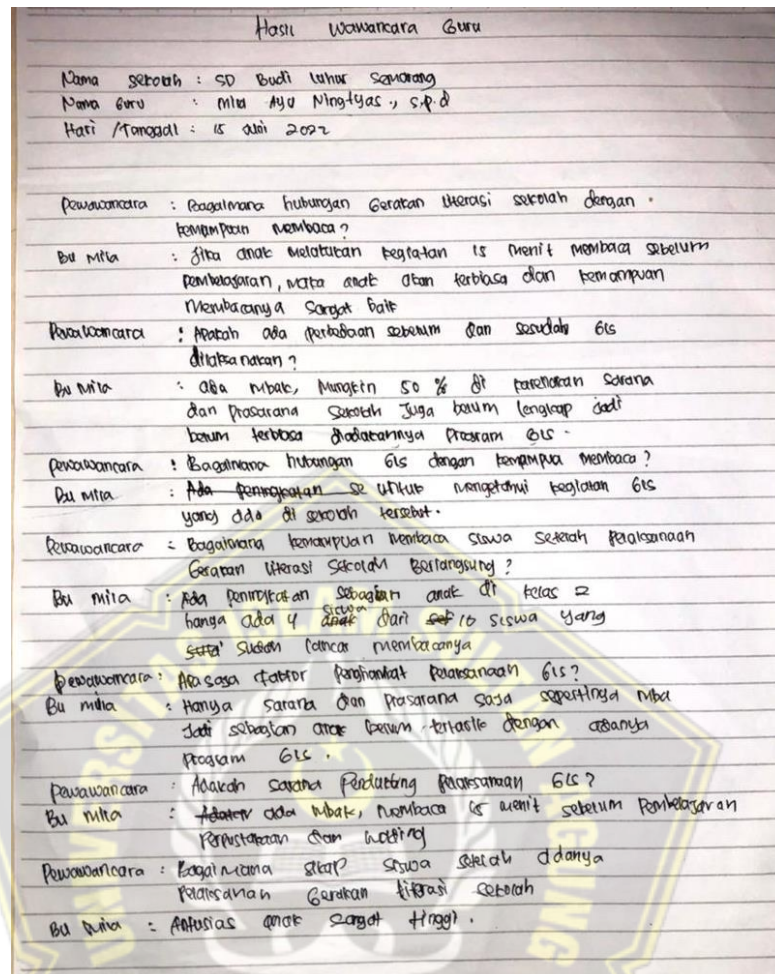 Hasil Wawancara Guru
Nama sekolah : SD Budi luhur Semarang
Nama Guru : Mila Ayu Ningtyas., S.p.d
Hari /Tanggal : 15 Juni 2022
Pewawancara : Bagaimana hubungan Gerakan literasi sekolah dengan
kemampuan membaca?
Bu Mila : Jika anak melakukan kegiatan 15 menit membaca sebelum
pembelajaran, maka anak akan terbiasa dan kemampuan
membacanya sangat baik
Pewawancara : Apakah ada perbedaan sebelum dan sesudah GLS
dilaksanakan?
Bu Mila : ada mbak, Mungkin 50 % di karenakan sarana
dan prasarana sekolah Juga belum lengkap jadi
belum terbiasa diadakannya Program GLS.
pewawancara : Bagaimana hubungan GLS dengan kemampua membaca?
Bu Mila : Ada peningkatan se untuk mengetahui kegiatan GLS
yang ada di sekolah tersebut.
Pewawancara : Bagaimana kemampuan membaca siswa setelah pelaksanaan
Gerakan literasi Sekolah Berlangsung?
Bu mila : Ada peningkatan sebagian anak di kelas 2
hanya ada 4 anak siswa dari 16 siswa yang
sudah lancar membacanya
pewawancara : Apa saja faktor Penghambat Pelaksanaan GLS?
Bu mila : Hanya sarana dan Prasarana saja sepertinya mba
Jadi sebagian anak belum dengan adanya
program GLS.
pewawancara : Adakah sarana Pendukung pelaksanaan GLS?
Bu mila : Adakah ada mbak, membaca 15 menit sebelum Pembelajaran
Perpustakaan dan mading
Pewawancara : Bagaimana sikap siswa setelah adanya
pelaksanan Gerakan literasi sekolah
Bu mila : Antusias anak sangat tinggi.
UNIVERSITAS ISLAM SULTAN AGUNG